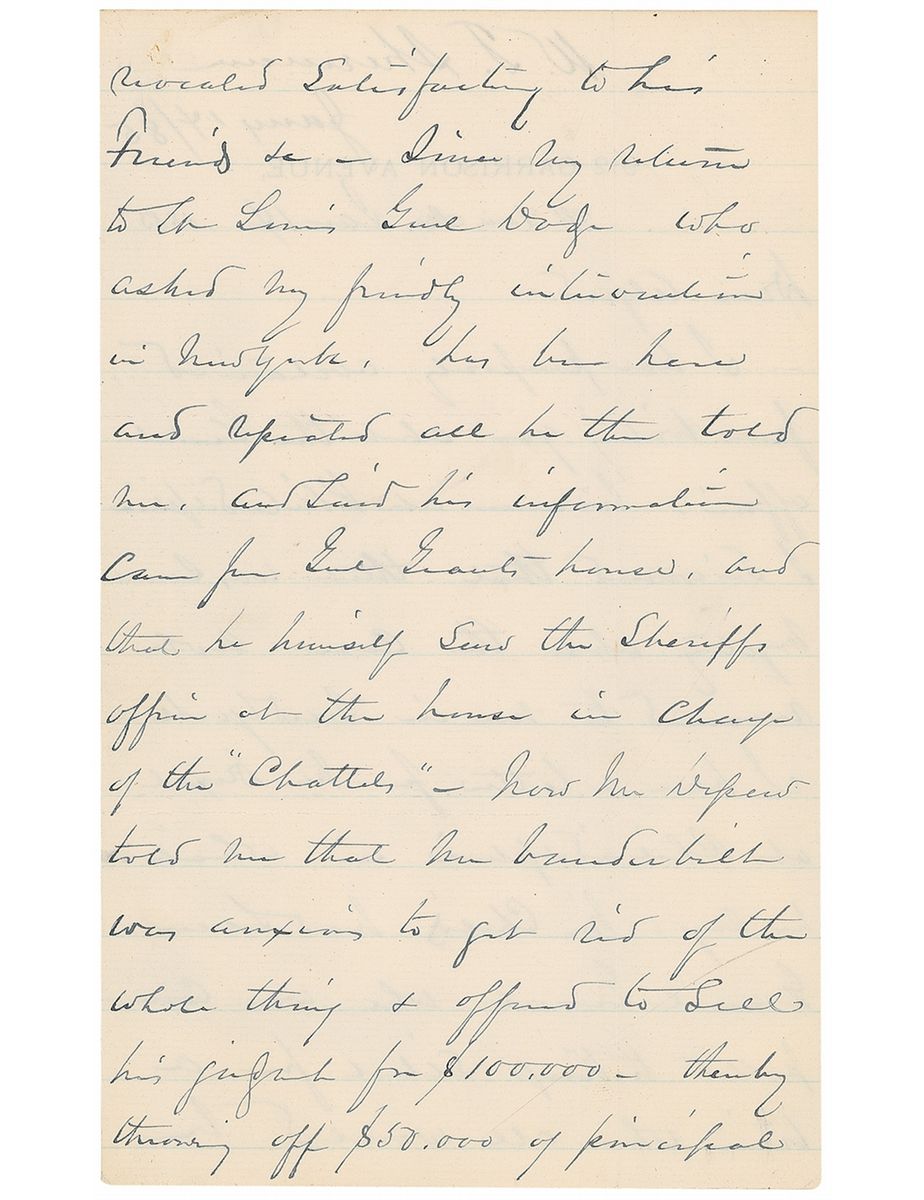 revealed Satisfactory to his
Friends &c – Since my return
to St Louis Genl Dodge who
asked my friendly intervention
in New York, has been here
and repeated all he then told
me, and said his information
came from Genl Grants house, and
that he himself saw the Sheriffs
officer at the house in charge
of the "Chattels" – Now Mr Depew
told me that Mr Vanderbilt
was anxious to get rid of the
whole thing & offered to Sell
his judgmt for $100.000 – thereby
throwing off $50.000 of principal